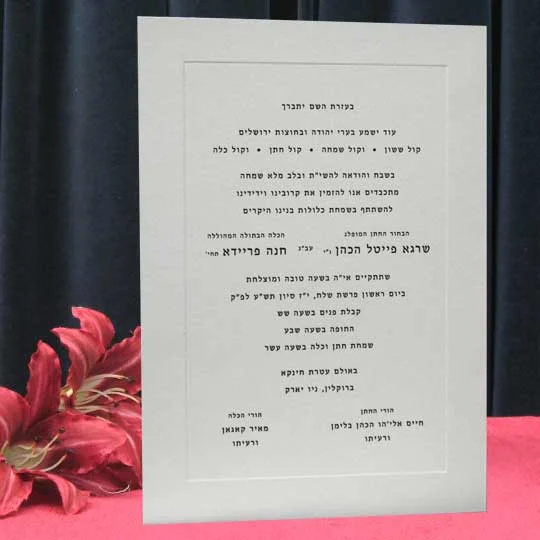 בעזרת השם יתברך
עוד ישמע בערי יהודה ובחוצות ירושלים
קול ששון • וקול שמחה • קול חתן • וקול כלה
בשבח והודאה להשי״ת ובלב מלא שמחה
מתכבדים אנו להזמין את קרובינו וידידינו
להשתתף בשמחת כלולות בנינו היקרים
הבחור החתן המופלג
שרגא פייטל הכהן ני״ו
עב״ג
הכלה הבתולה המהוללה
חנה פריידא תחי׳
שתתקיים אי״ה בשעה טובה ומוצלחת
ביום ראשון פרשת שלח, י״ז סיון תש״ע לפ״ק
קבלת פנים בשעה שש
החופה בשעה שבע
שמחת חתן וכלה בשעה עשר
באולם עטרת חינקא
ברוקלין, ניו יארק
הורי החתן
חיים אלי׳הו הכהן בלימן
ורעיתו
הורי הכלה
מאיר קאגאן
ורעיתו